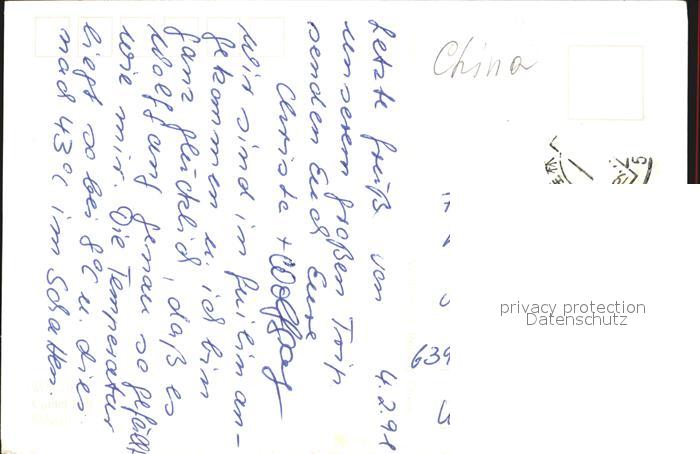 China
4.2.98
Letzte Grüße von
unserem großen Trip
senden Euch Eure
Christa + Wolfgang
Wir sind in Guilin an-
gekommen u. ich bin
ganz glücklich, daß es
Wolfgang genau so gefällt
wie mir. Die Temperatur
liegt so bei 8°C u. dies
mal 43°C im Schatten.
639
privacy protection
Datenschutz